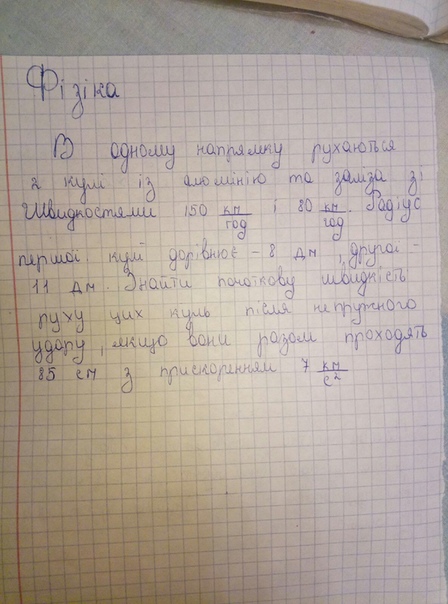 Фізіка
В одному напрямку рухаються
2 кулі із алюмінію та заліза зі
Швидкостями 150 км/год і 80 км/год. Радіус
першої кулі дорівнює - 8 дм, другої -
11 дм. Знайти початкову швидкість
руху цих куль після непружного
удару, якщо вони разом проходять
85 см з прискоренням 7 км/с²